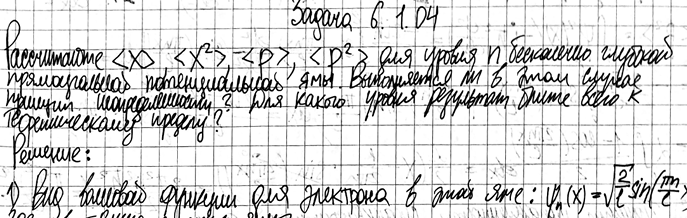 Задача 6.1.04
Рассчитайте <x> <x²>, <p>, <p²> для уровня n бесконечно глубокой
прямоугольной потенциальной ямы. Выполняется ли в этом случае
принцип неопределенности? Для какого уровня результат ближе всего к
теоретическому пределу?
Решение:
1) Вид волновой функции для электрона в этой яме: ψₙ(x) = √(2/L) sin(πn/L